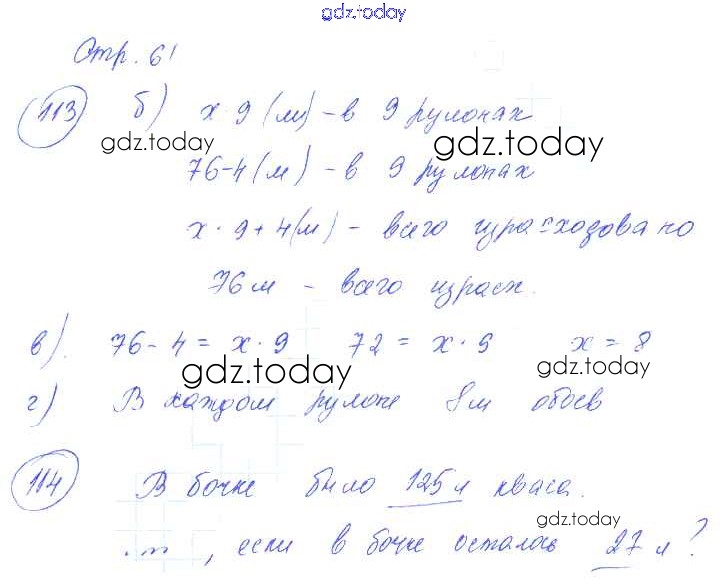 gdz.today
Стр. 61
113 б) x·9 (м) - в 9 рулонах
gdz.today gdz.today
76-4 (м) - в 9 рулонах
x·9+4 (м) - всего израсходовано
76 м - всего израсх.
в). 76-4 = x·9 72 = x·9 x = 8
gdz.today gdz.today
г) В каждом рулоне 8 м обоев
114 В бочке было 125 л кваса.
gdz.today
, если в бочке осталось 27 л?